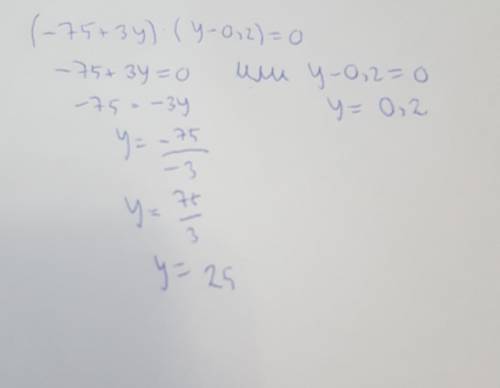 (-75+3y)·(y-0,2)=0
-75+3y=0 или y-0,2=0
-75=-3y y=0,2
y=-75/-3
y=75/3
y=25